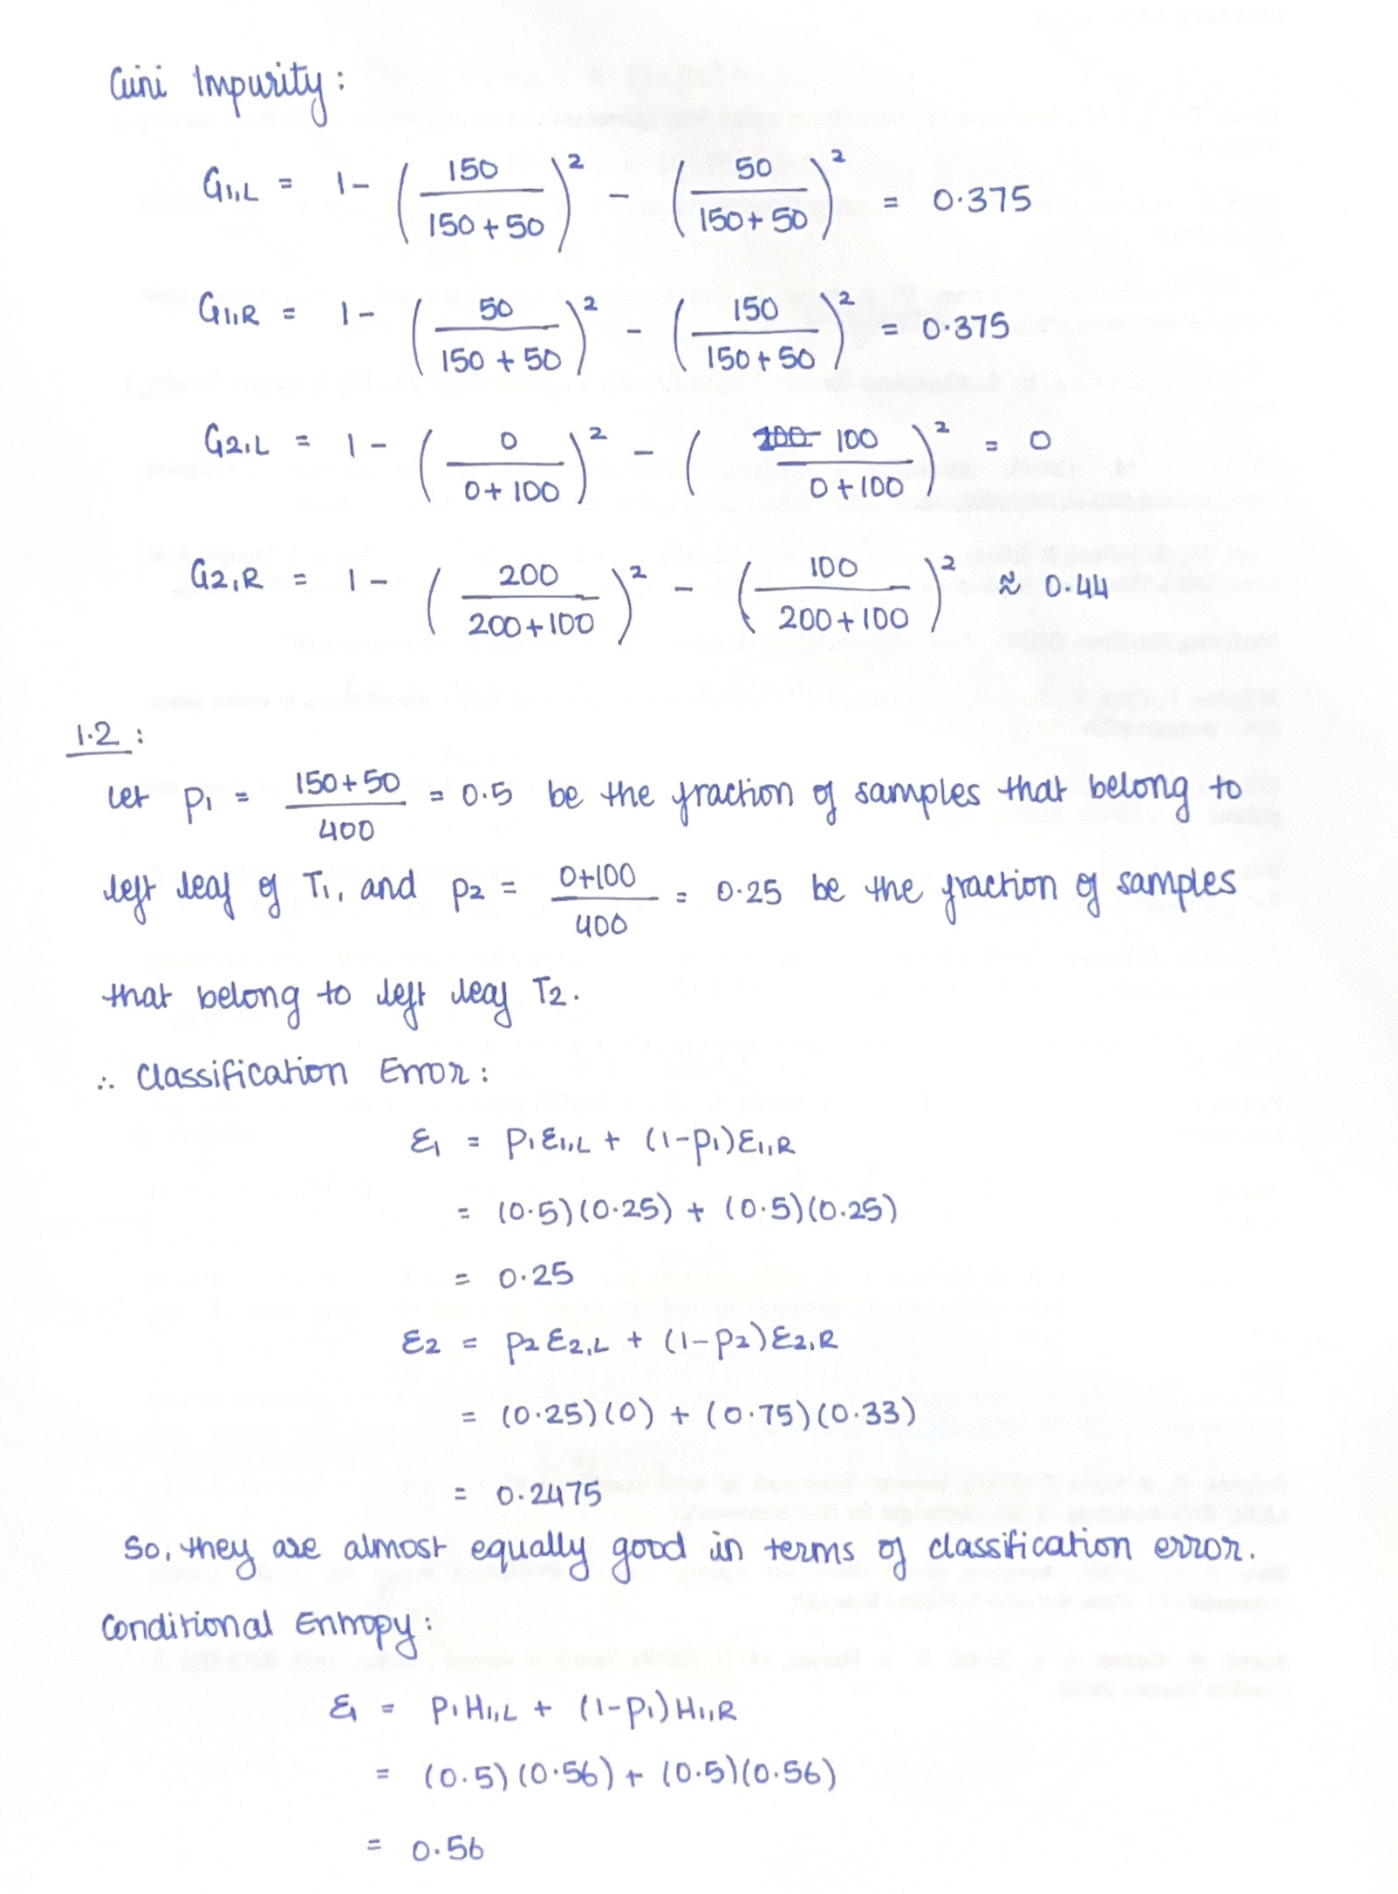 Gini Impurity:
G1,L = 1 - (150 / (150 + 50))² - (50 / (150 + 50))² = 0.375
G1,R = 1 - (50 / (150 + 50))² - (150 / (150 + 50))² = 0.375
G2,L = 1 - (0 / (0 + 100))² - (100 / (0 + 100))² = 0
G2,R = 1 - (200 / (200 + 100))² - (100 / (200 + 100))² ≈ 0.44
1.2:
Let p1 = (150 + 50) / 400 = 0.5 be the fraction of samples that belong to
left leaf of T1, and p2 = (0+100) / 400 = 0.25 be the fraction of samples
that belong to left leaf T2.
∴ Classification Error:
ε1 = p1ε1,L + (1-p1)ε1,R
= (0.5)(0.25) + (0.5)(0.25)
= 0.25
ε2 = p2ε2,L + (1-p2)ε2,R
= (0.25)(0) + (0.75)(0.33)
= 0.2475
So, they are almost equally good in terms of classification error.
Conditional Entropy:
ε1 = p1H1,L + (1-p1)H1,R
= (0.5)(0.56) + (0.5)(0.56)
= 0.56